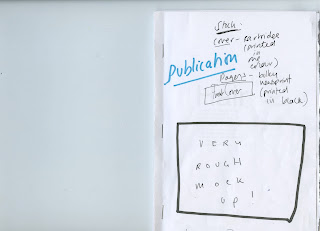 Stock:
Cover - cartridge
(printed
in
one
colour)
Publication
Pages - bulky
newsprint
(printed
in black)
VERY
ROUGH
MOCK
UP!